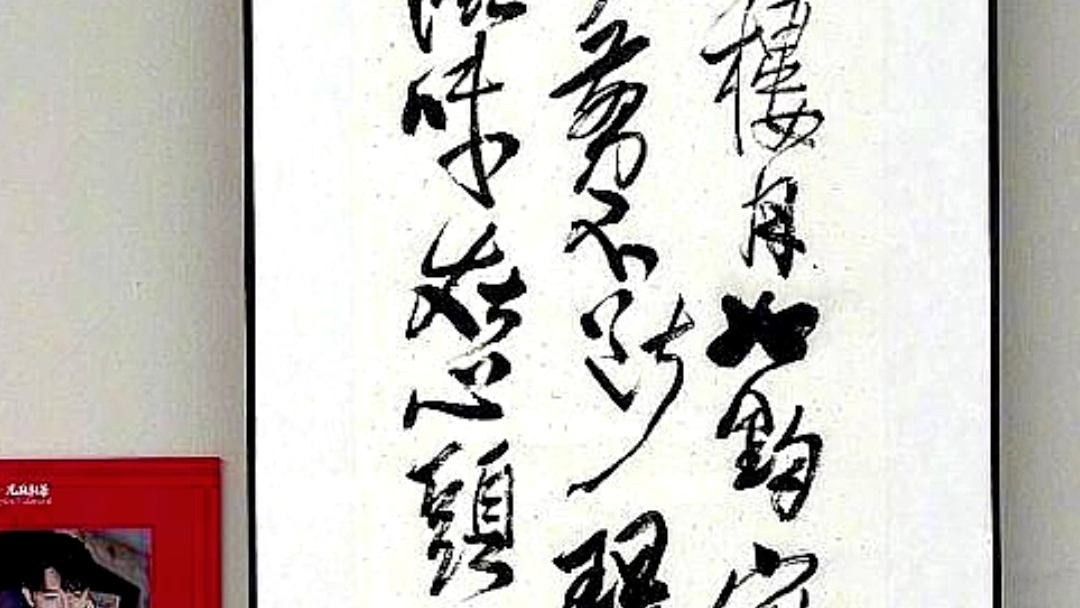 樓月如鉤
剪不斷理
味在心頭